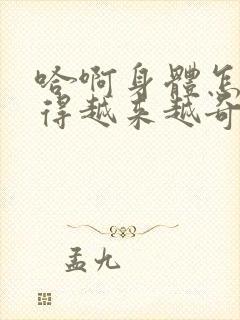 哈啊身體怎
得越来越奇
孟九